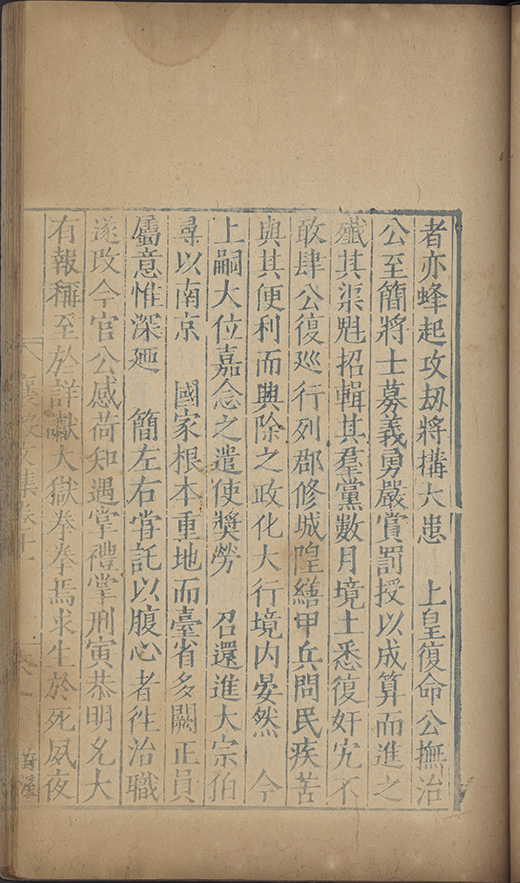 者亦蜂起攻刼將構大患　上皇復命公撫治
公至簡將士募義勇嚴賞罰授以成算而進之
殱其渠魁招輯其羣黨數月境土悉復奸宄不
敢肆公復廵行列郡修城隍繕甲兵問民疾苦
與其便利而興除之政化大行境内晏然　今
上嗣大位嘉念之遣使奬勞　召還進大宗伯
尋以南京　國家根本重地而臺省多闕正員
屬意惟深廼　簡左右甞託以腹心者徃治職
遂改今官公感荷知遇掌禮掌刑寅恭明允大
有報稱至於詳讞大獄拳拳焉求生於死夙夜
文集卷十